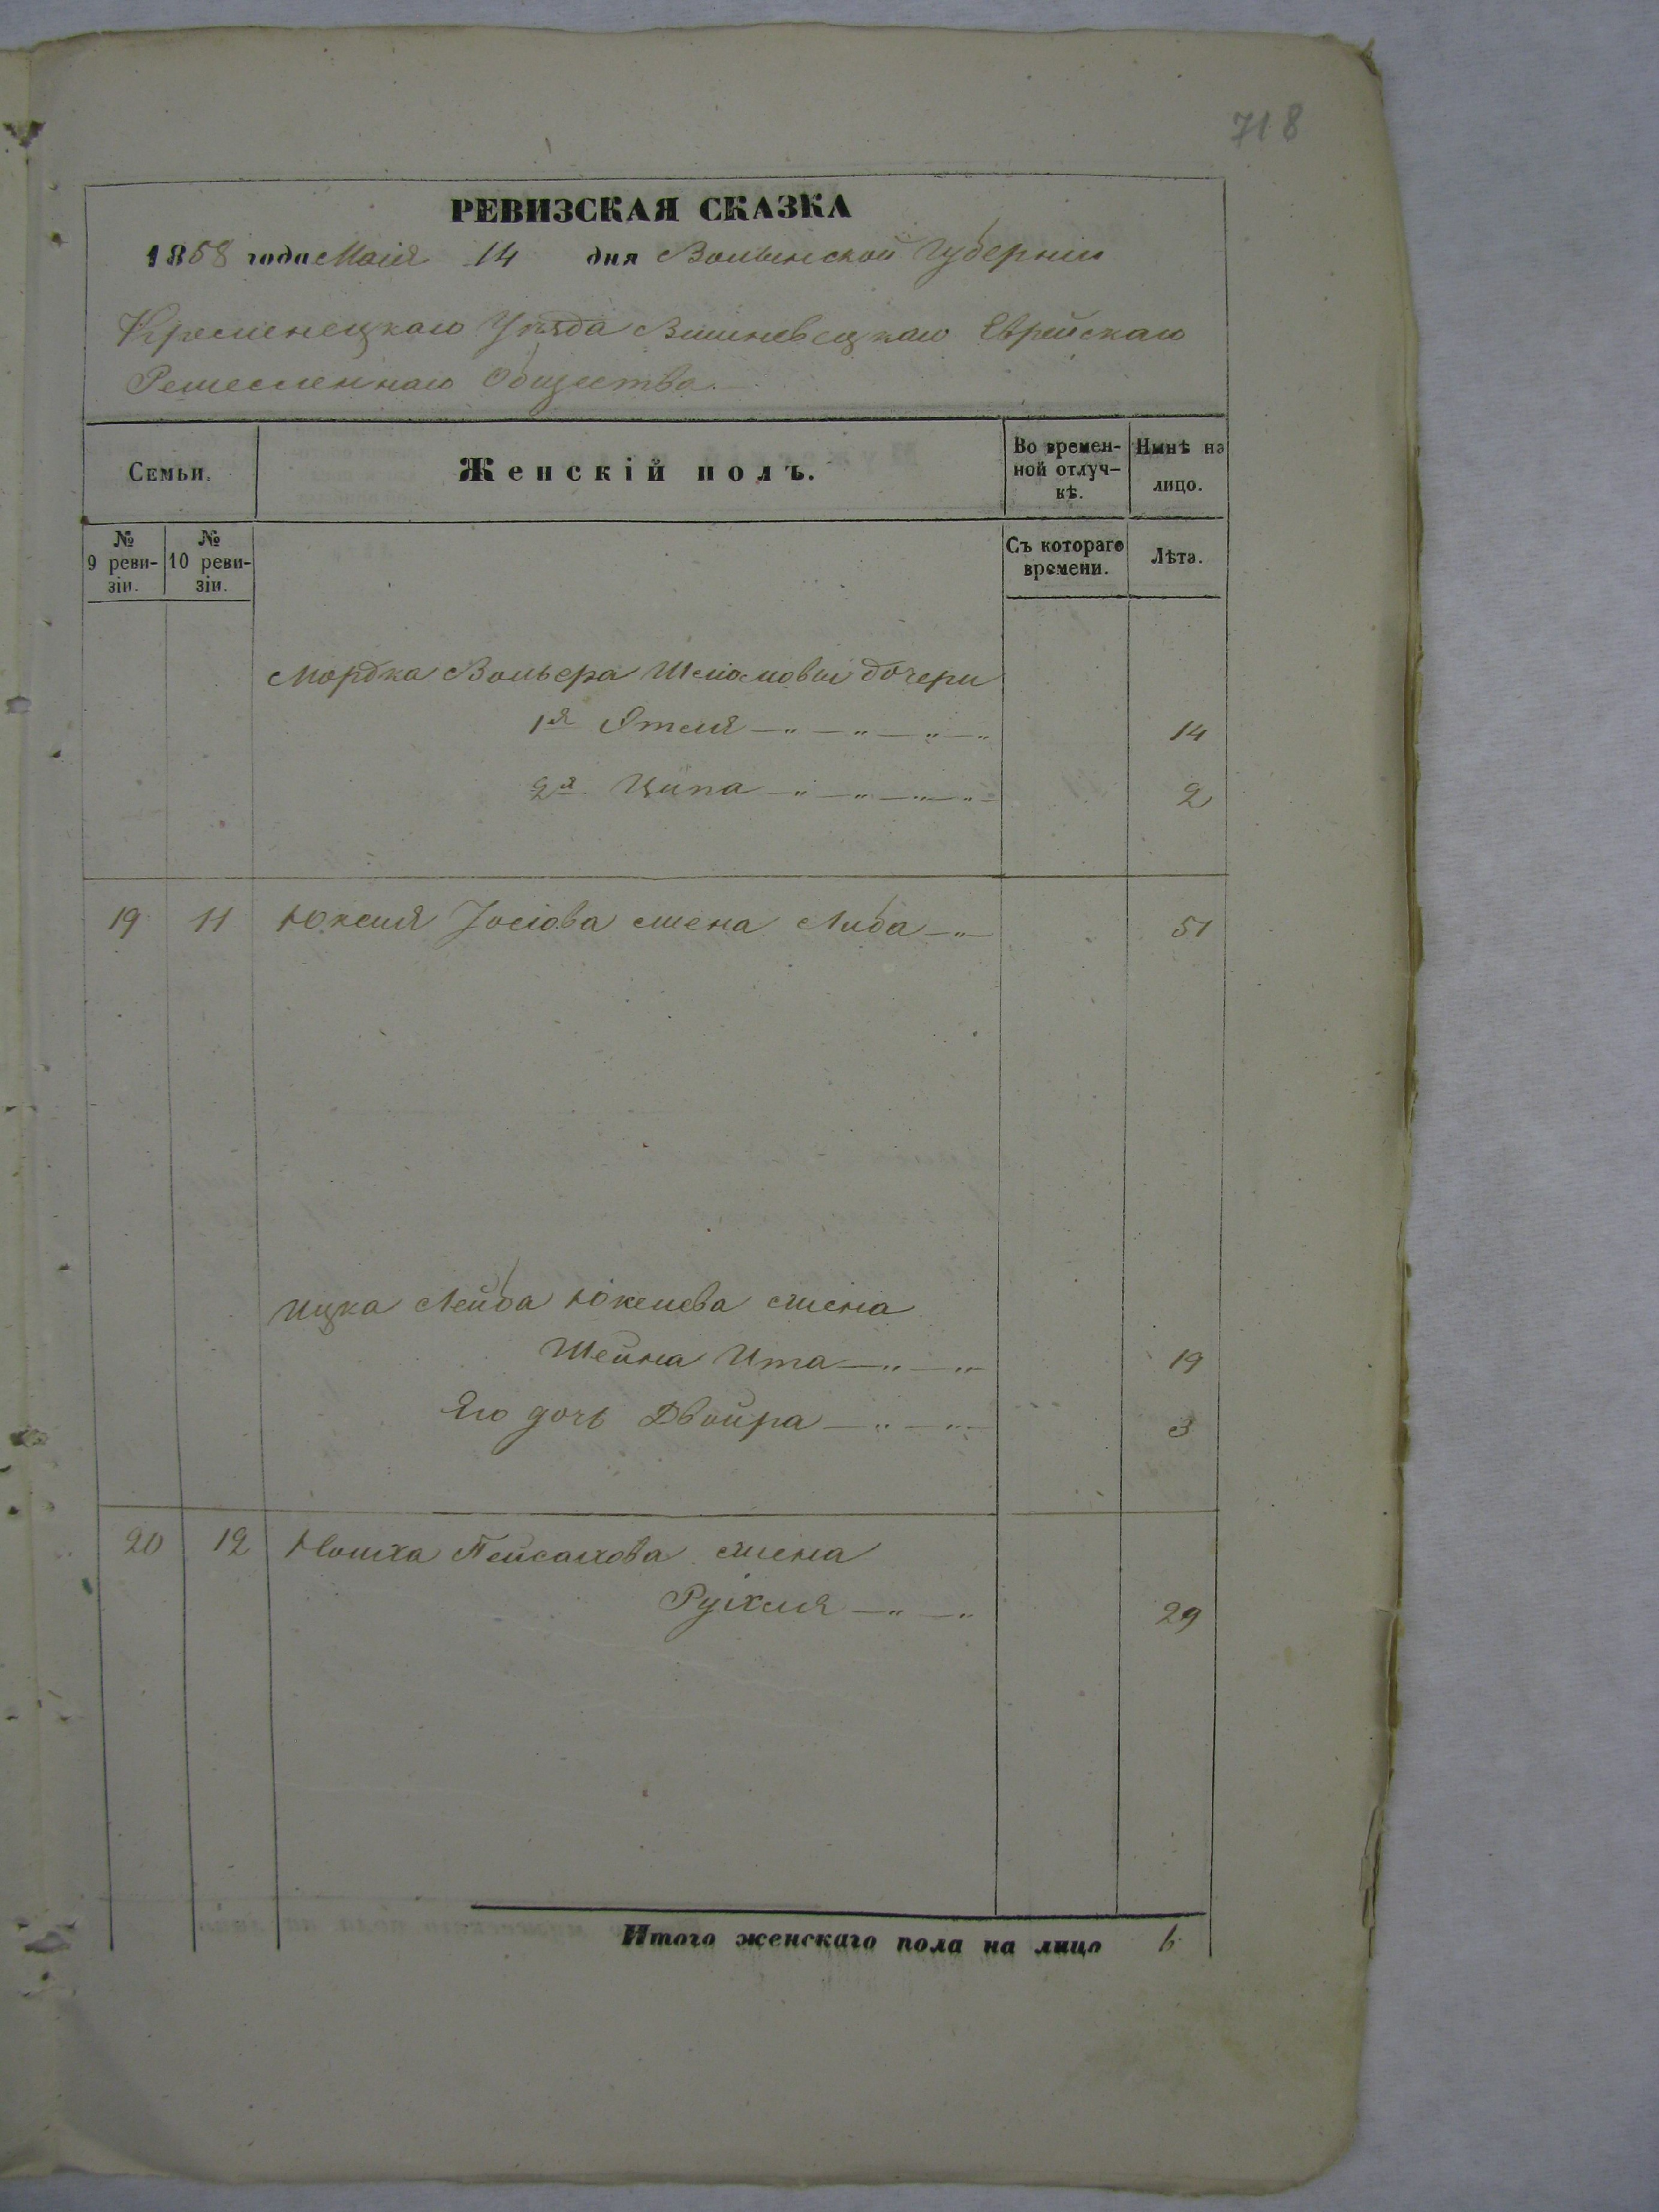 718
РЕВИЗСКАЯ СКАЗКА
1858 года Маія 14 дня Волынской Губерніи
Кременецкаго Уѣзда Вишневецкаго Еврейскаго
Ремесленнаго Общества
Семьи. Женскій полъ. Во времен- Нынѣ на
ной отлуч- лицо.
кѣ.
№ № Съ котораго Лѣта.
9 реви- 10 реви- времени.
зіи. зіи.
Мордка Вольера дочери
1я Этля 14
2я Ципа 2
19 11 Юкеля Іосіова жена Либа 51
Ицка Лейба Юкелева жена
Шейна Ита 19
Его дочь Двойра 3
20 12 Пейсахова жена
Рухля 29
Итого женскаго пола на лицо 6